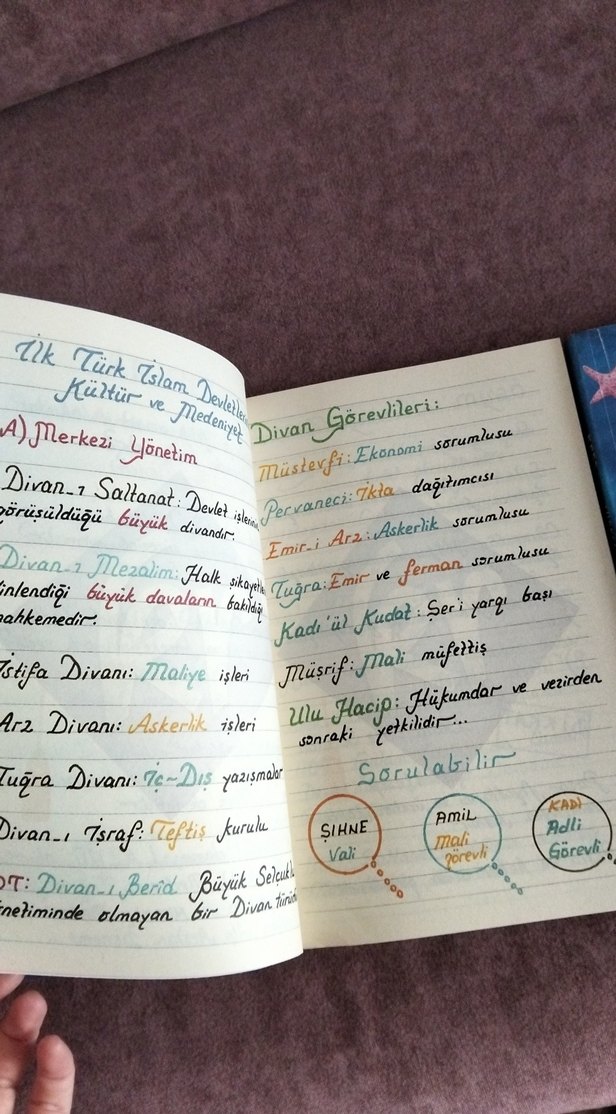 İlk Türk İslam Devletler
Kültür ve Medeniyet
A) Merkezi Yönetim
Divan-ı Saltanat: Devlet işlerinin
görüşüldüğü büyük divandır.
Divan-ı Mezalim: Halk şikayetle
dinlendiği büyük davaların bakıldığı
mahkemedir.
İstifa Divanı: Maliye işleri
Arz Divanı: Askerlik işleri
Tuğra Divanı: İç-Dış yazışmalar
Divan-ı İşraf: Teftiş kurulu
OT: Divan-ı Berid Büyük Selçuklu
yönetiminde olmayan bir Divan türüdür
Divan Görevlileri:
Müstevfi: Ekonomi sorumlusu
Pervaneci: İkta dağıtımcısı
Emir-i Arz: Askerlik sorumlusu
Tuğra: Emir ve ferman sorumlusu
Kadı'ül Kudat: Şer'i yargı başı
Müşrif: Mali müfettiş
Ulu Hacip: Hükumdar ve vezirden
sonraki yetkilidir...
Sorulabilir
ŞIHNE
Vali
AMİL
Mali
görevli
KADI
Adli
Görevli